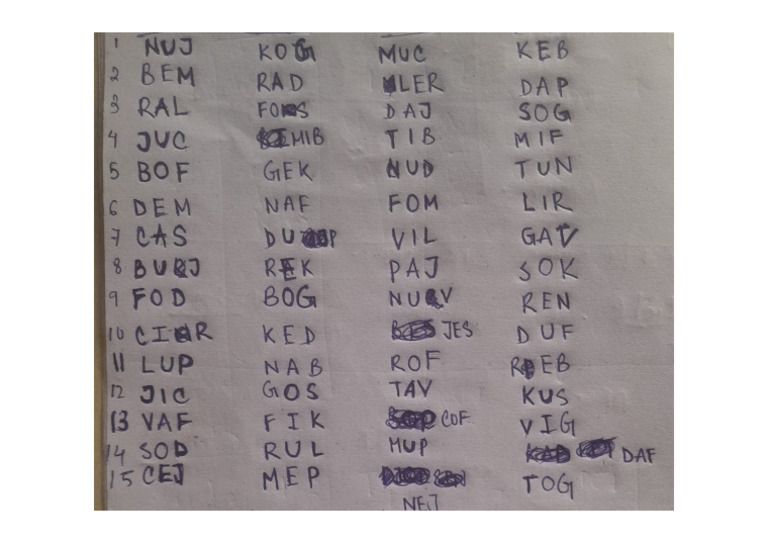 1 NUJ KOG MUC KEB
2 BEM RAD LER DAP
3 RAL FOS DAJ SOG
4 JUC MIB TIB MIF
5 BOF GEK NUD TUN
6 DEM NAF FOM LIR
7 CAS DUP VIL GAV
8 BUJ REK PAJ SOK
9 FOD BOG NUV REN
10 CIR KED JES DUF
11 LUP NAB ROF REB
12 JIC GOS TAV KUS
13 VAF FIK COF VIG
14 SOD RUL MUP DAF
15 CEJ MEP NEJ TOG